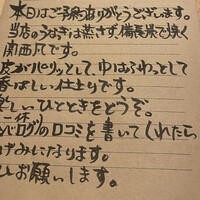 本日はご予約ありがとうございます。
当店のうなぎは蒸さず、備長炭で焼く
関西風です。
皮がパリッとして、中はふわっとして
香ばしい仕上りです。
楽しいひとときをどうぞ。
一休
食べログの口コミを書いてくれたら
はげみになります。
ぜひお願いします。